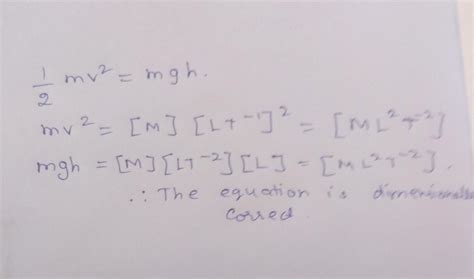 1/2 mv² = mgh.
mv² = [M] [LT⁻¹]² = [ML²T⁻²]
mgh = [M][LT⁻²][L] = [ML²T⁻²].
∴ The equation is dimensionally
Corred.